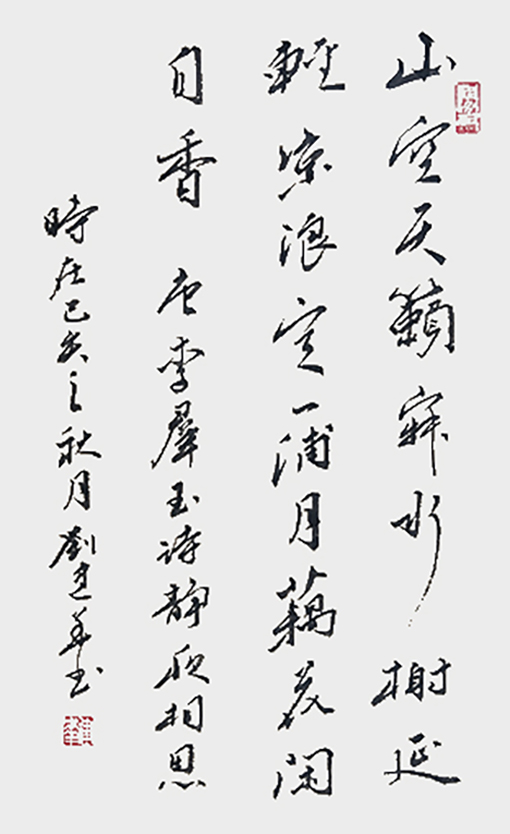 山空天籟寂水榭延
輕涼浪定一浦月藕花閑
自香 唐李羣玉诗靜夜相思
時在己亥之秋月劉建華书